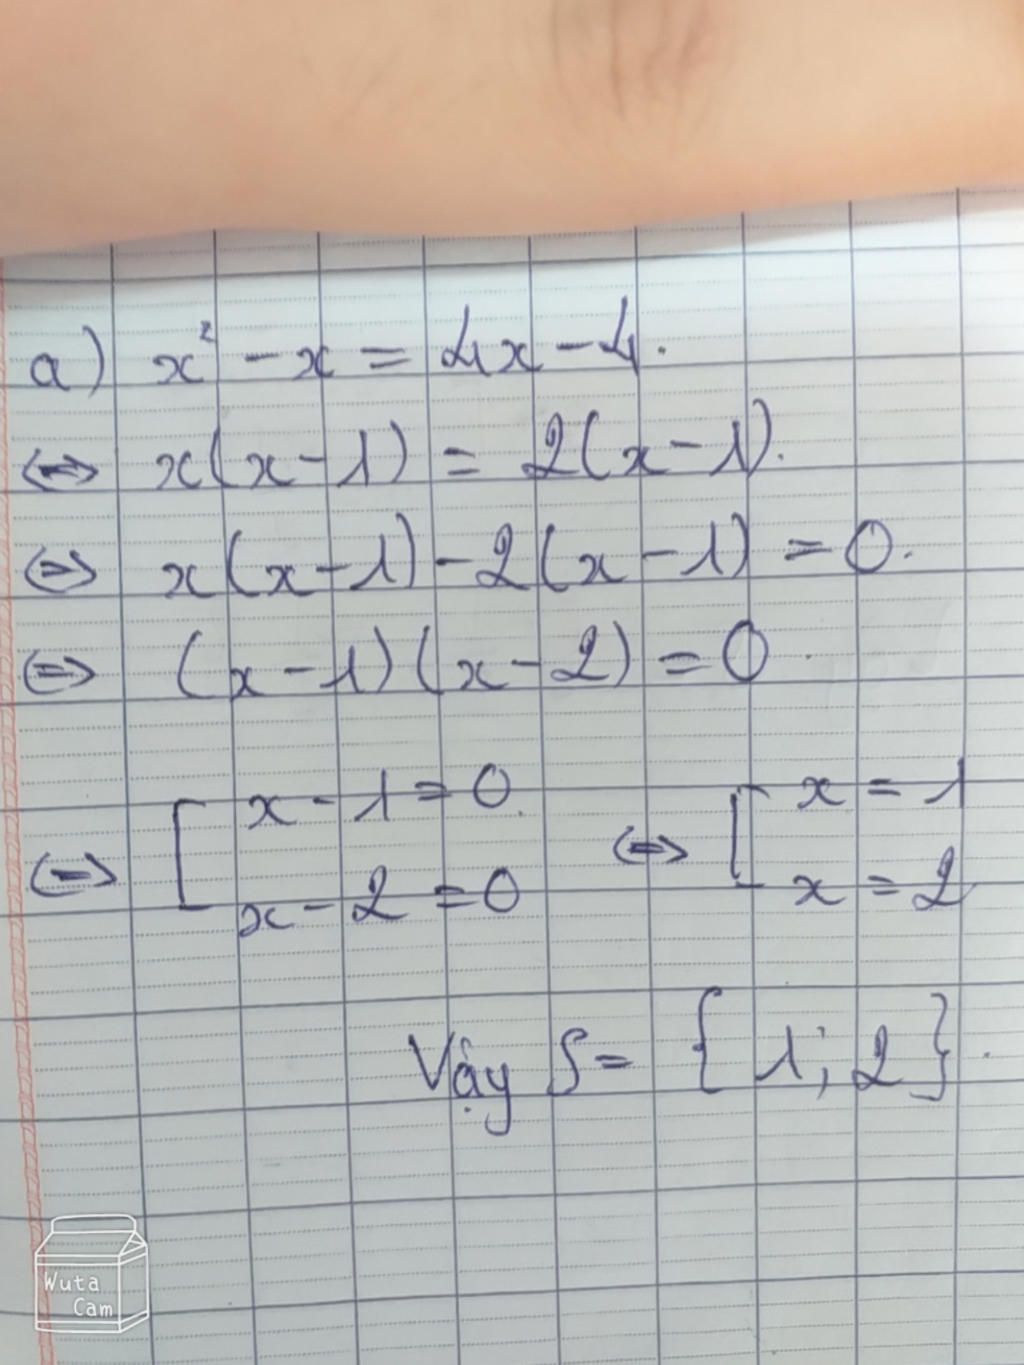 a) x² - x = 4x - 4.
⇔ x(x-1) = 2(x-1).
⇔ x(x-1) - 2(x-1) = 0.
⇔ (x-1)(x-2) = 0.
⇔ [ x - 1 = 0. ⇔ [ x = 1
x - 2 = 0 x = 2
Vậy S = { 1; 2 }.
Wuta
Cam